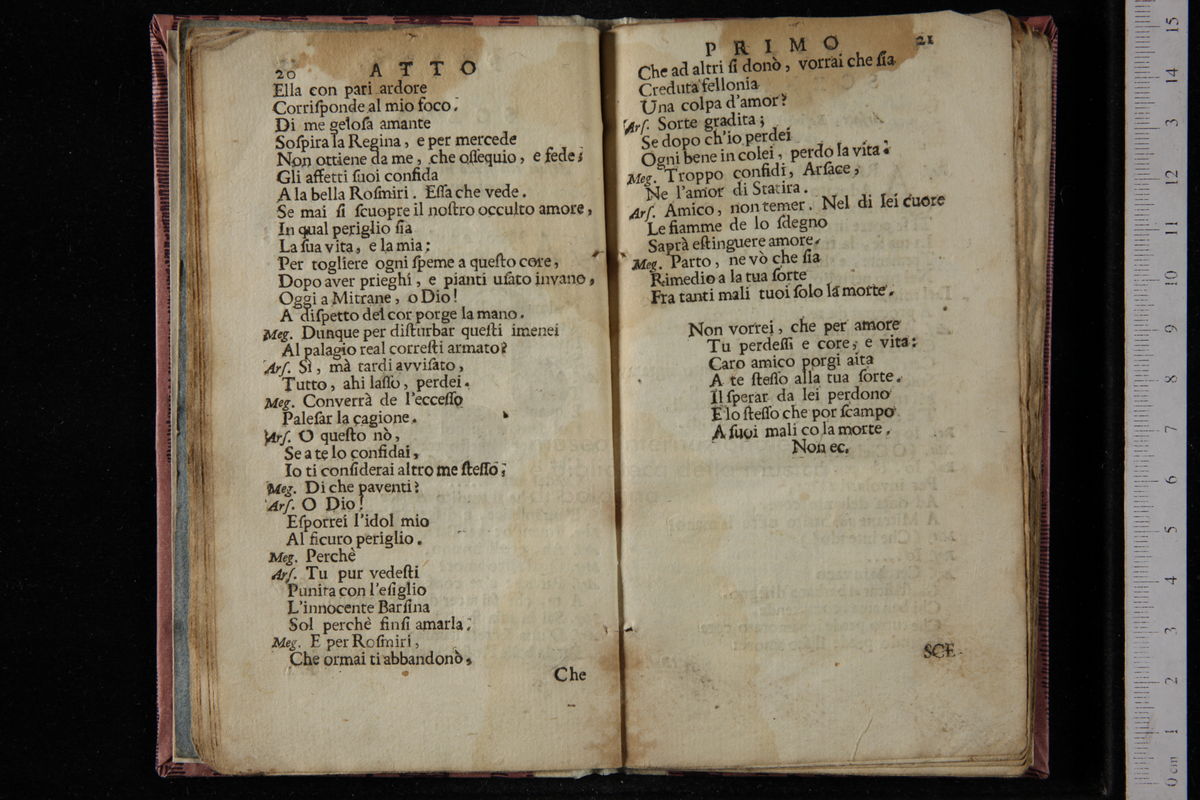 20 ATTO
Ella con pari ardore
Corriſponde al mio foco.
Di me geloſa amante
Soſpira la Regina, e per mercede
Non ottiene da me, che oſſequio, e fede;
Gli affetti ſuoi confida
A la bella Roſmiri. Eſſa che vede.
Se mai ſi ſcuopre il noſtro occulto amore,
In qual periglio ſia
La ſua vita, e la mia:
Per togliere ogni ſpeme a queſto core,
Dopo aver prieghi, e pianti uſato invano,
Oggi a Mitrane, o Dio!
A diſpetto del cor porge la mano.
Meg. Dunque per diſturbar queſti imenei
Al palagio real correſti armato?
Arſ. Sì, mà tardi avviſato,
Tutto, ahi laſſo, perdei.
Meg. Converrà de l'ecceſſo
Paleſar la cagione.
Arſ. O queſto nò,
Se a te lo confidai,
Io ti conſiderai altro me ſteſſo;
Meg. Di che paventi?
Arſ. O Dio!
Eſporrei l'idol mio
Al ſicuro periglio.
Meg. Perchè
Arſ. Tu pur vedeſti
Punita con l'eſiglio
L'innocente Barſina
Sol perchè finſi amarla.
Meg. E per Roſmiri,
Che ormai ti abbandonò,
Che
PRIMO 21
Che ad altri ſi donò, vorrai che ſia
Creduta fellonia
Una colpa d'amor?
Arſ. Sorte gradita;
Se dopo ch'io perdei
Ogni bene in colei, perdo la vita.
Meg. Troppo confidi, Arſace,
Ne l'amor di Statira.
Arſ. Amico, non temer. Nel di lei cuore
Le fiamme de lo ſdegno
Saprà eſtinguere amore.
Meg. Parto, ne vò che ſia
Rimedio a la tua ſorte
Fra tanti mali tuoi ſolo la morte.
Non vorrei, che per amore
Tu perdeſſi e core, e vita:
Caro amico porgi aita
A te ſteſſo alla tua ſorte.
Il ſperar da lei perdono
E lo ſteſſo che por ſcampo
A ſuoi mali co la morte.
Non ec.
SCE-